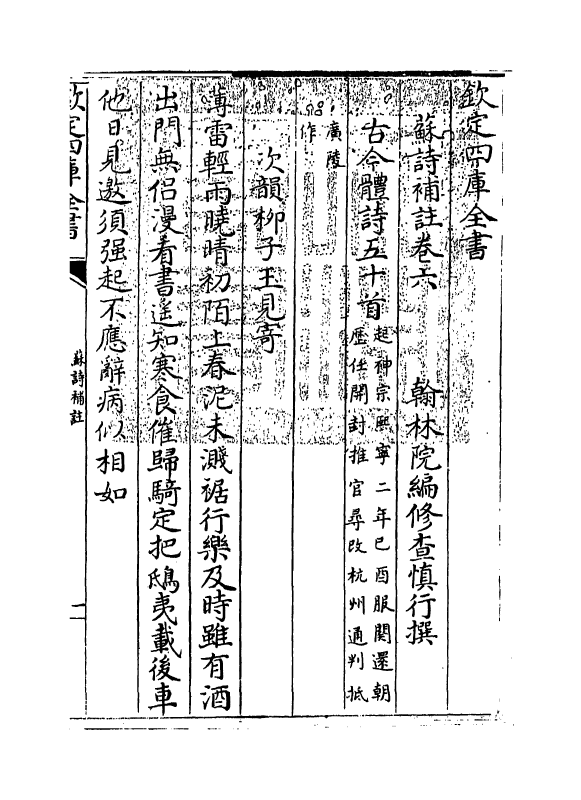 欽定四庫全書
蘇詩補註卷六　翰林院編修查慎行撰
古今體詩五十首
起神宗熙寧二年己酉服闋還朝
歴任開封推官尋改杭州通判抵
廣陵
作
次韻柳子玉見寄
薄雷輕雨曉晴初陌上春泥未濺裾行樂及時雖有酒
出門無侣漫看書遙知寒食催歸騎定把鴟夷載後車
他日見邀須强起不應辭病似相如
欽定四庫全書
蘇詩補註
一